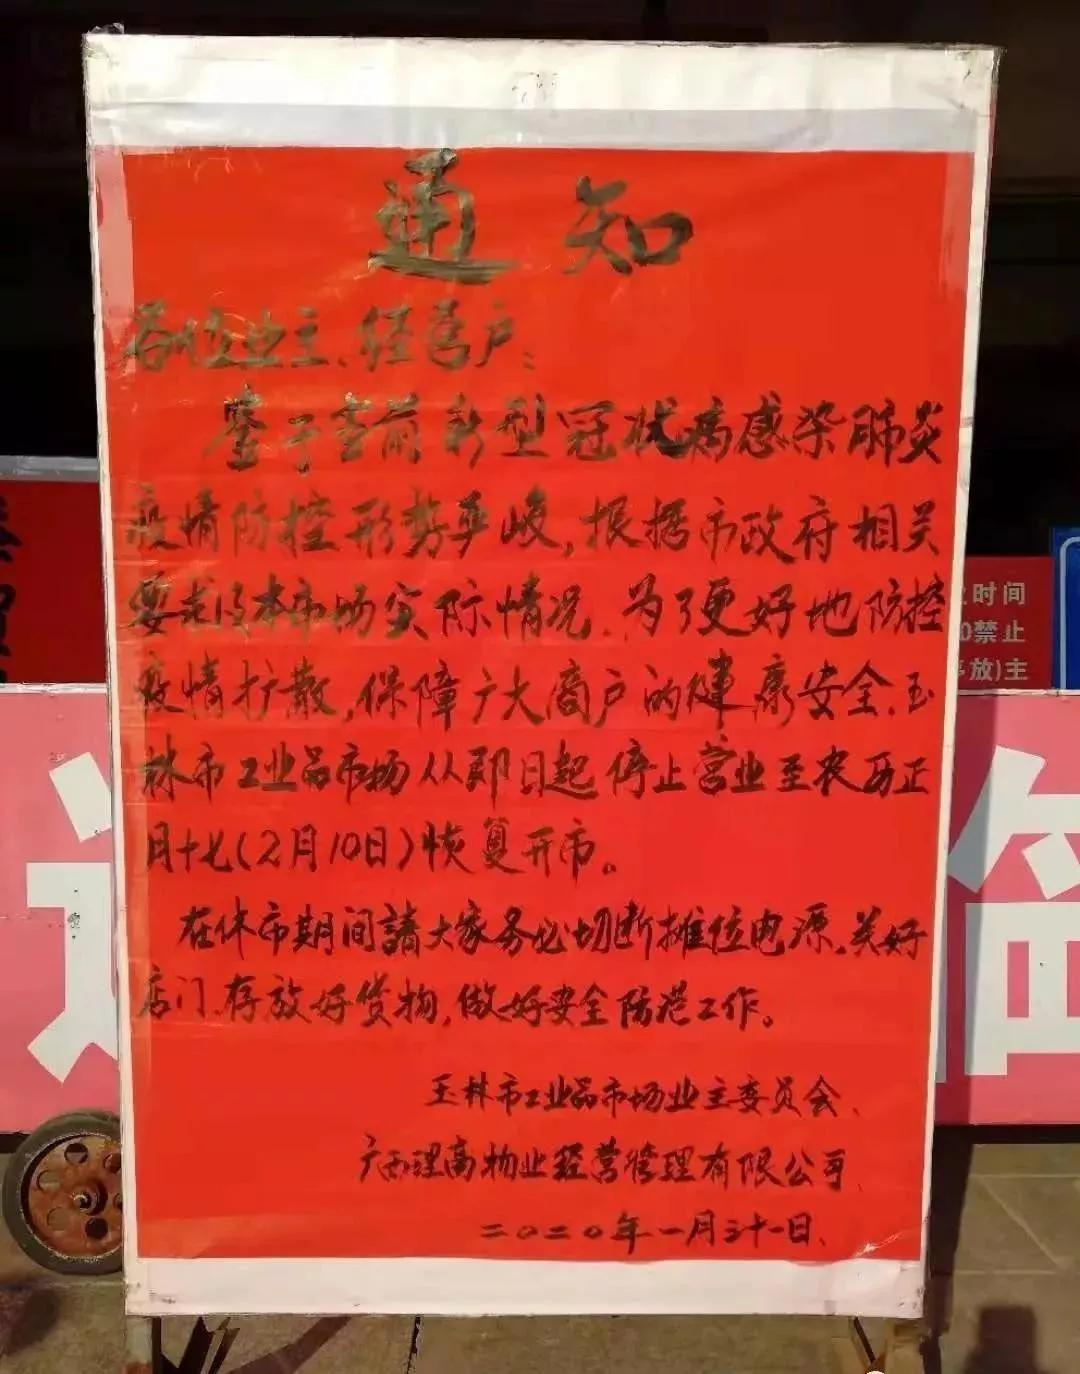 通知
各位业主、经营户：
鉴于当前新型冠状病感染肺炎
疫情防控形势严峻，根据市政府相关
要求及本市场实际情况，为了更好地防控
疫情扩散，保障广大商户的健康安全，玉
林市工业品市场从即日起停止营业至农历正
月十七（2月10日）恢复开市。
在休市期间請大家务必切断摊位电源，关好
店门，存放好货物，做好安全防范工作。
玉林市工业品市场业主委员会、
广西理高物业经营管理有限公司
二〇二〇年一月三十一日、
时间
0禁止
停放)主